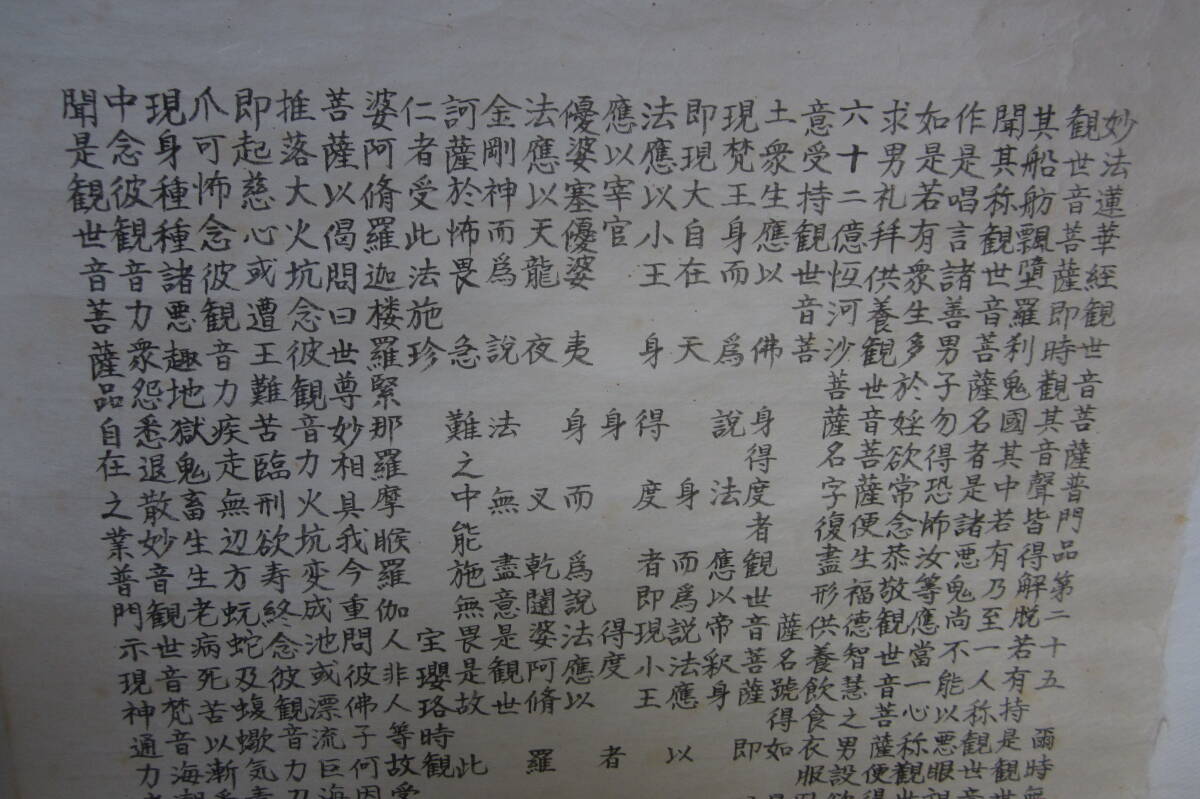 妙法蓮華經観世音菩薩普門品第二十五 爾時無
観世音菩薩即時觀其音聲皆得解脱若有持是観世
其船舫飄墮羅刹鬼國其中若有乃至一人称観世音
聞其称観世音菩薩名者是諸悪鬼尚不能以悪眼視
作是唱言諸善男子勿得恐怖汝等應當一心称觀世
如是若有衆生多於婬欲常念恭敬観世音菩薩便得
求男礼拜供養観世音菩薩便生福德智慧之男設欲
六十二億恆河沙菩薩名字復盡形供養飲食衣服
意受持観世音菩薩名號得如
土衆生應以佛身得度者観世音菩薩即
現梵王身而爲說法應以帝釈身
即現大自在天身而爲説法應以
法應以小王身得度者即現小王
應以宰官身得度者
優婆塞優婆夷身而爲說法應以
法應以天龍夜叉乾闥婆阿脩羅
金剛神而爲說法無盡意是観世
訶薩於怖畏急難之中能施無畏是故此
仁者受此法施珍宝瓔珞時観
婆阿脩羅迦楼羅緊那羅摩睺羅伽人非人等故受
菩薩以偈問曰世尊妙相具我今重問彼佛子何因
推落大火坑念彼観音力火坑変成池或漂流巨海
即起慈心或遭王難苦臨刑欲寿終念彼観音力刀
爪可怖念彼観音力疾走無辺方蚖蛇及蝮蠍気毒
現身種種諸悪趣地獄鬼畜生生老病死苦以漸悉
中念彼観音力衆怨悉退散妙音観世音梵音海潮
聞是観世音菩薩品自在之業普門示現神通力者